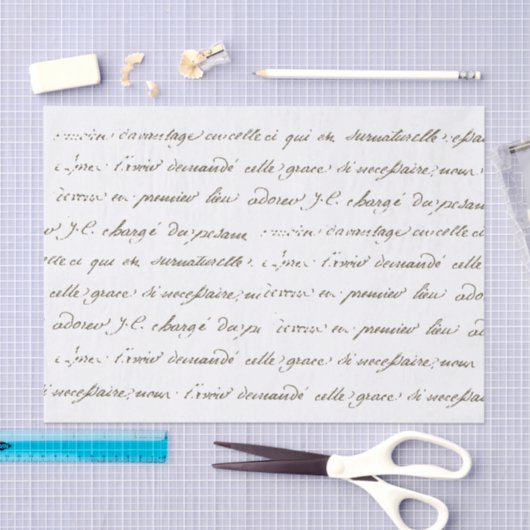 davantage en celle ci qui est surnaturelle, essai
Après l'avoir demandé cette grace si necessaire, nous
devons en premier lieu adorer J.C. chargé du pesam
r J.C. chargé du pesam davantage en celle ci
elle ci qui est surnaturelle. Après l'avoir demandé cette
cette grace si necessaire, n devons en premier lieu ado
adorer J.C. chargé du p devons en premier lieu ad
Après l'avoir demandé cette grace si necessaire, nous
si necessaire, nous l'avoir demandé cette grace si necessai